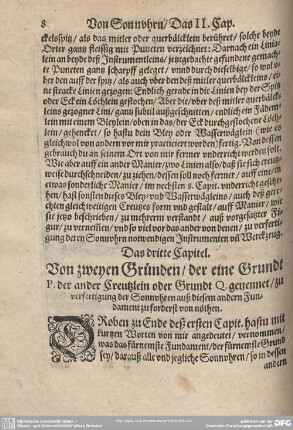 8 Von Sonnvhrn / Das II. Cap.
ckelspitz / als das mitler oder querbälcklein berühret / solche beyde
Orter gantz fleissig mit Puncten verzeichnet: Darnach ein Linia-
lein an beyde deß Instrumentleins / jetztgedachte gefundene gemach-
te Puncten gantz scharpff geleget / vnnd durch dieselbige / so wol v-
ber den auff der spitz / als auch vber den deß mitler querbälckleins / ei-
ne starcke Linien gezogen: Endlich gerade in die Linien bey der Spitz
oder Eck ein Löchlein gestochen / Aber die / vber deß mitler querbälck-
leins gezogene Lini / gantz subtil außgeschnitten / endlich ein Fädem-
lein mit einem Bleylein / oben in das / der Eck durchgestochene Löch-
lein / gehencket / so hastu dein Bley oder Wasserwäglein (wie es
gleichwol von andern vor mir practiciert worden) fertig. Von dessen
gebrauch du an seinem Ort von mir ferner vnderricht werden solst.
Wie aber auff ein ander Manier / zwo Linien also / daß sie sich creutz-
weise durchschneiden / zu ziehen / dessen soll noch ferner / auff eine / in
etwas sonderliche Manier / im nechsten 8. Capit. vnderricht gesche-
hen / hast sonsten dieses Bley- vnd Wasserwägleins / auch deß ge-
rechten gleichwincklichen Creutzes form vnd gestalt / auff Manier / wie
sie jetzo beschrieben / zu mehrerm verstand / auß vorgesetzter Fi-
gur / zu vernemmen / vnd so viel vor das ander von denen / zu verferti-
gung deren Sonnvhrn notwendigen Instrumenten vñ Werckzeug.
Das dritte Capitel.
Von zweyen Gründen / der eine Grundt
P. der ander Creutzlein oder Grundt Q. genennet / zu
verfertigung der Sonnvhrn auß diesem andern Fun-
dament zu forderst von nöthen.
DRoben zu Ende deß ersten Capit. hastu mit
kurtzen Worten von mir angedeutet / vernommen /
was das fürnemste Fundament / der fürnemste Grundt
sey / darauß alle vnd jegliche Sonnvhrn / so in dessen
andern